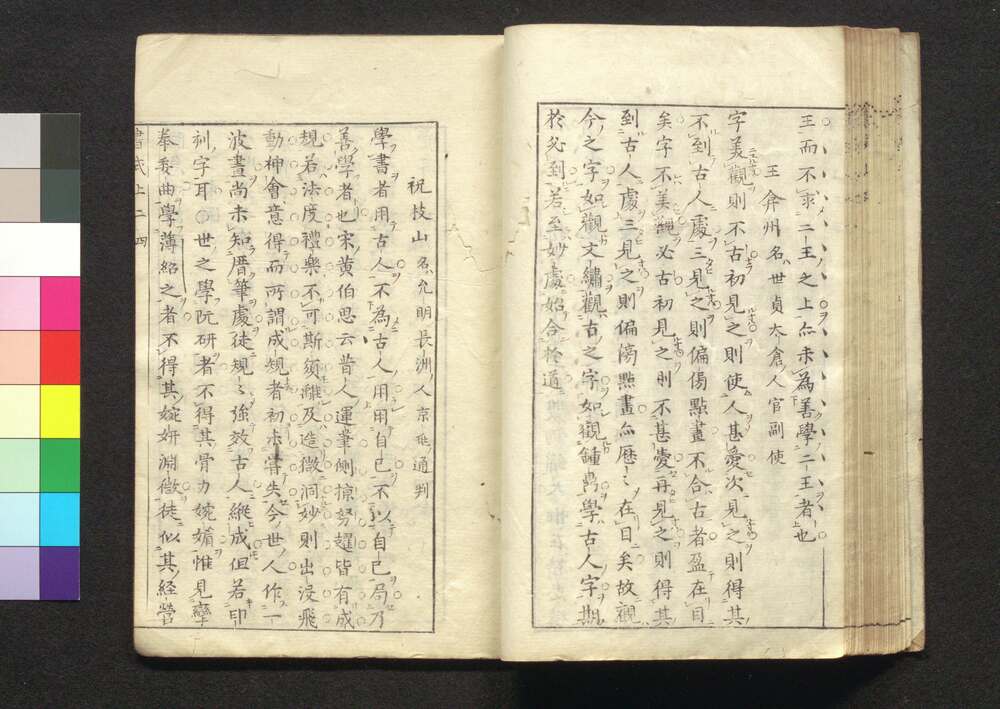 王而不求二王之上亦未為善學二王者也
王弇州名世貞太倉人官副使
字美觀則不古初見之則使人甚愛次見之則得其
不到古人處三見之則偏傷點畫不合古者盈在目
矣字不美觀必古初見之則不甚愛再見之則得其
到古人處三見之則偏傷點畫亦歷〻在目矣故觀
今之字如觀文繡觀古之字如觀鍾鼎學古人字期
於必到若至妙處始合於道
祝枝山名允明長洲人京兆通判
學書者用古人不為古人用用自己不以自己局乃
善學者也宋黃伯思云昔人運筆側掠努趯皆有成
規若法度禮樂不可斯須離及造微洞妙則出没飛
動神會意得而所謂成規者初未嘗失今世人作一
波畫尚未知厝筆處徒規〻強效古人縱成但若印
刋字耳世之學阮研者不得其骨力婉媚惟見攣
拳委曲學薄紹之者不得其婉妍淵微徒似其經營
書式上二 四